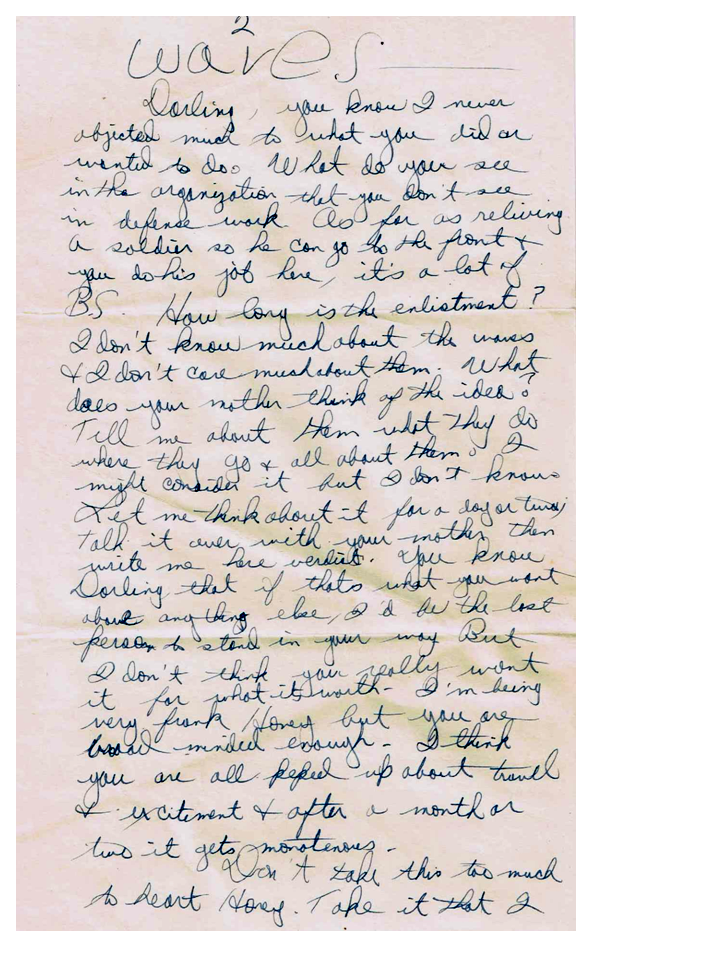 2
waves.
Darling, you know I never
objected much to what you did or
wanted to do. What do you see
in the organization that you don't see
in defense work. As far as reliving
a soldier so he can go to the front &
you do his job here, it's a lot of
B.S. How long is the enlistment?
I don't know much about the waves
& I don't care much about them. What
does your mother think of the idea?
Tell me about them what they do
where they go & all about them. I
might consider it but I don't know.
Let me think about it for a day or two,
talk it over with your mother then
write me here verdict. You know
Darling, that if thats what you want
above anything else, I'd be the last
person to stand in your way But
I don't think you really want
it for what it's worth - I'm being
very frank Honey but you are
broad minded enough - I think
you are all peped up about travel
& excitement & after a month or
two it gets monotenous -
Don't take this too much
to heart Honey. Take it that I